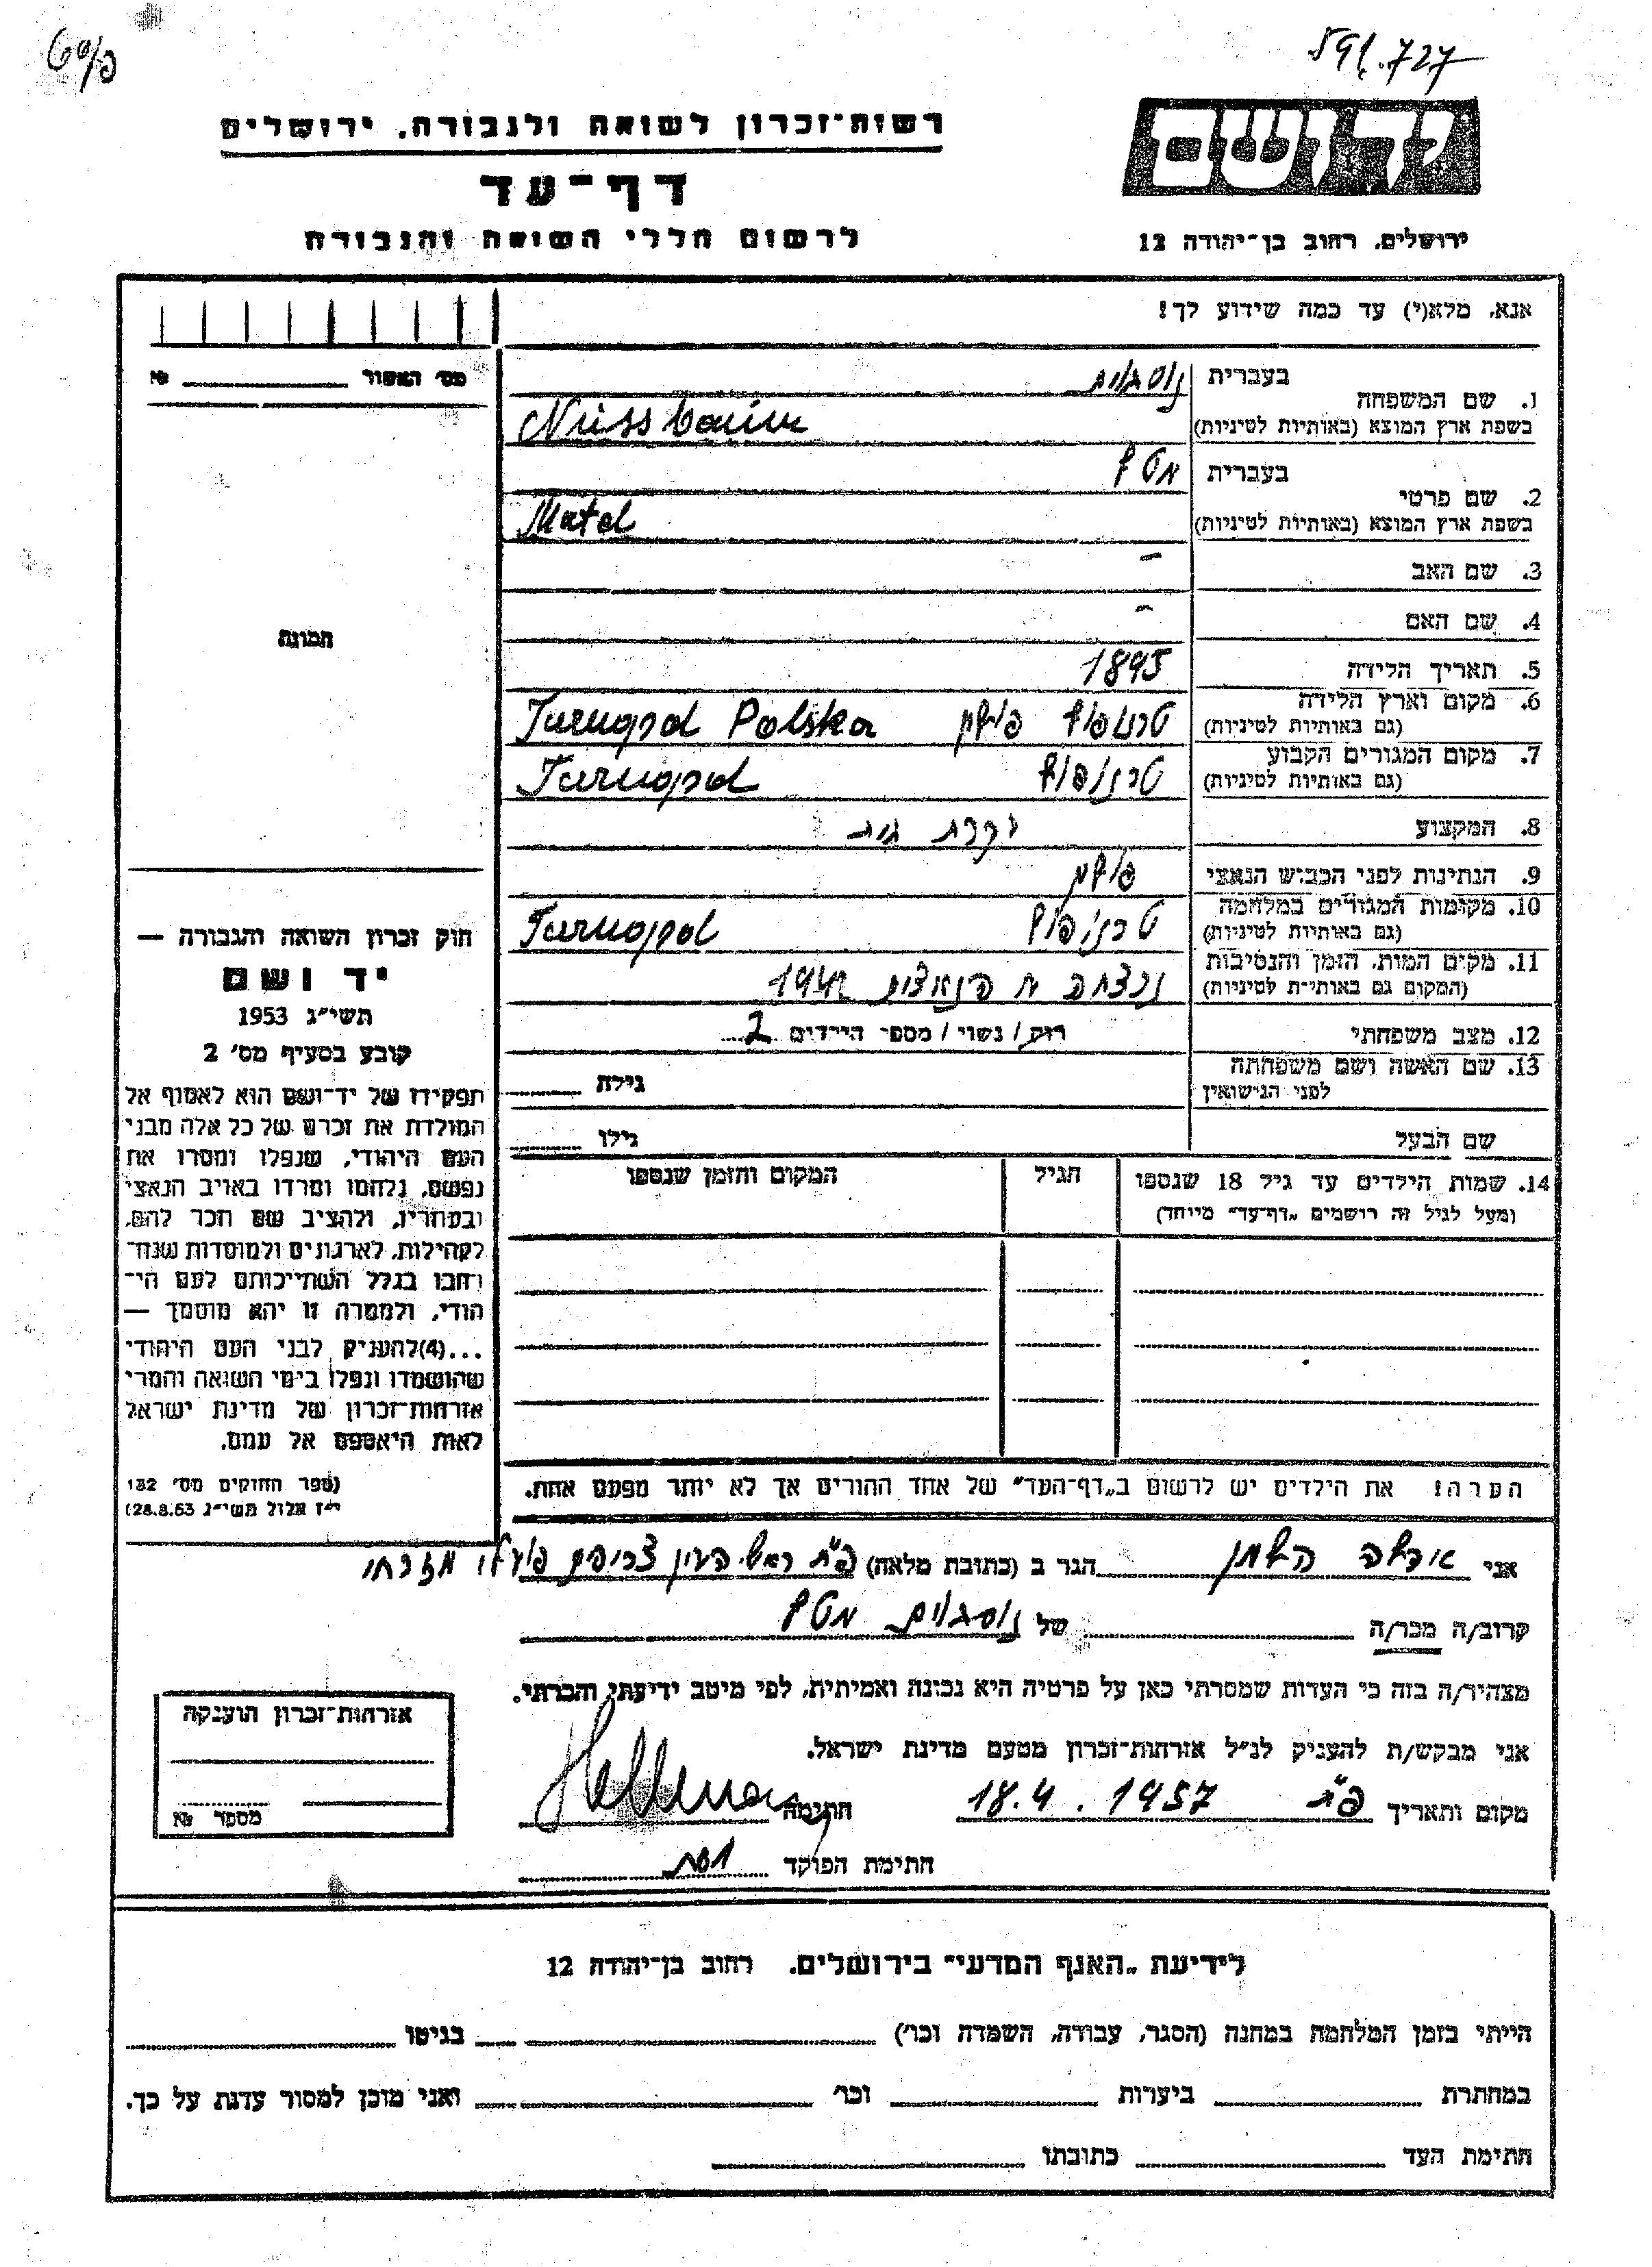 591.727
רשות־זכרון לשואה ולגבורה, ירושלים
דף־עד
לרשום חללי השואה והגבורה
יד ושם
ירושלים, רחוב בן־יהודה 12
אנא, מלא(י) עד כמה שידוע לך!
מס׳ האשור № 
1. שם המשפחה
בעברית נוסבוים
בשפת ארץ המוצא (באותיות לטיניות) Nussbaum
2. שם פרטי
בעברית מטל
בשפת ארץ המוצא (באותיות לטיניות) Matel
3. שם האב –
4. שם האם –
5. תאריך הלידה 1895
6. מקום וארץ הלידה
(גם באותיות לטיניות) טרנופול פולין Tarnopol Polska
7. מקום המגורים הקבוע
(גם באותיות לטיניות) טרנופול Tarnopol
8. המקצוע עקרת בית
9. הנתינות לפני הכבוש הנאצי פולין
10. מקומות המגורים במלחמה
(גם באותיות לטיניות) טרנופול Tarnopol
11. מקום המות, הזמן והנסיבות
(המקום גם באותיות לטיניות) נרצחה הנאצים 1942
12. מצב משפחתי רוק / נשוי / מספר הילדים 2
13. שם האשה ושם משפחתה
לפני הנישואין גילה
שם הבעל גילו
14. שמות הילדים עד גיל 18 שנספו הגיל המקום והזמן שנספו
(ומעל לגיל זה רושמים „דף־עד״ מייחד)
הערה! את הילדים יש לרשום ב„דף־העד״ של אחד ההורים אך לא יותר מפעם אחת.
תמונה
חוק זכרון השואה והגבורה —
יד ושם
תשי״ג 1953
קובע בסעיף מס׳ 2
תפקידו של יד־ושם הוא לאסוף אל
המולדת את זכרם של כל אלה מבני
העם היהודי, שנפלו ומסרו את
נפשם, נלחמו ומרדו באויב הנאצי
ובעוזריו, ולהציב שם וזכר להם,
לקהילות, לארגונים ולמוסדות שנח־
רבו בגלל השתייכותם לעם הי־
הודי, ולמטרה זו יהא מוסמך —
...(4)להעניק לבני העם היהודי
שהושמדו ונפלו בימי השואה והמרי
אזרחות־זכרון של מדינת ישראל
לאות היאספם אל עמם.
(ספר החוקים מס׳ 132
י״ז אלול תשי״ג 28.8.53)
אני הלמן הגר ב (כתובת מלאה) פ״ת ראש העין צריפים פועלי מזרחי
קרוב/ה מכר/ה של נוסבוים מטל
מצהיר/ה בזה כי העדות שמסרתי כאן על פרטיה היא נכונה ואמיתית, לפי מיטב ידיעתי והכרתי.
אני מבקש/ת להעניק לנ״ל אזרחות־זכרון מטעם מדינת ישראל.
מקום ותאריך פ״ת 18.4.1957 חתימה Hellman
חתימת הפוקד
אזרחות־זכרון הוענקה
מספר №
לידיעת „האגף המדעי״ בירושלים, רחוב בן־יהודה 12
הייתי בזמן המלחמה במחנה (הסגר, עבודה, השמדה וכו׳) בגיטו
במחתרת ביערות וכו׳ ואני מוכן למסור עדות על כך.
חתימת העד כתובתו